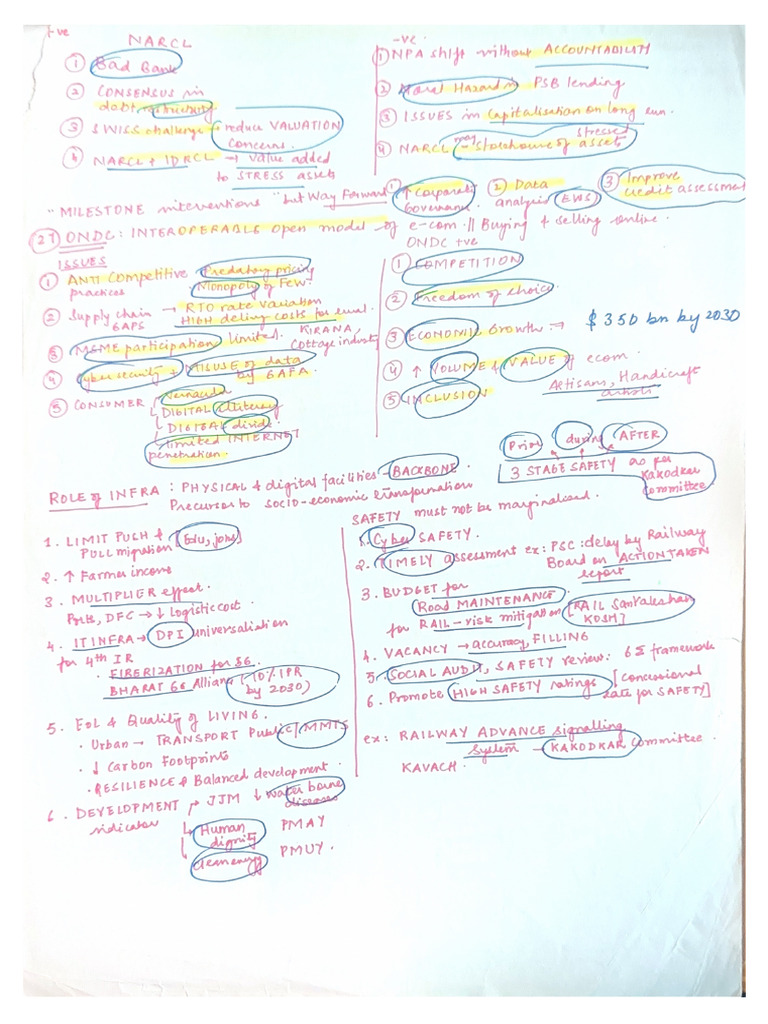 +ve
NARCL
① Bad Bank
② CONSENSUS in
debt restructuring
③ SWISS challenge → reduce VALUATION
Concerns.
④ NARCL & IDRCL → Value added
to STRESS assets
-ve
① NPA shift without ACCOUNTABILITY
② Moral Hazard in PSB lending
③ ISSUES in capitalisation on long run.
④ NARCL may - storehouse of stressed assets
"MILESTONE interventions" but Way Forward
① ↑ Corporate
Governance
② Data
analysis EWS
③ Improve
credit assessment
(27) ONDC: INTEROPERABLE open model of e-com. || Buying & selling online.
ISSUES
① ANTI Competitive
practices
Predatory pricing
Monopoly of Few.
② Supply chain
GAPS
→ RTO rate variation
HIGH delivery costs for rural.
③ MSME participation limited. KIRANA,
Cottage industry
④ Cyber security & MISUSE of data
by GAFA.
⑤ CONSUMER
Vernacular
DIGITAL illiteracy
DIGITAL divide
limited INTERNET
penetration.
ONDC +ve
① COMPETITION
② Freedom of choice
③ ECONOMIC Growth → $ 350 bn by 2030
④ ↑ VOLUME & VALUE of ecom.
Artisans, Handicraft
⑤ INCLUSION
ROLE of INFRA : PHYSICAL & digital facilities - BACKBONE.
Precursor to socio-economic transformation
Prior during AFTER
3 STAGE SAFETY as per
Kakodkar
Committee
1. LIMIT PUSH &
PULL migration [Edu, jobs]
2. ↑ Farmer income
3. MULTIPLIER effect.
Ports, DFC → ↓ Logistic cost
4. IT INFRA → DPI universalisation
for 4th IR
. FIBERIZATION for 5G.
BHARAT 6G Alliance (10% IPR
by 2030)
5. EoL & Quality of LIVING.
. Urban → TRANSPORT Public / MMTS
. ↓ Carbon Footprints
. RESILIENCE & Balanced development.
6. DEVELOPMENT
indicator
→ JJM ↓ water borne
diseases
↳ Human
dignity
PMAY
↳ clean energy
PMUY.
SAFETY must not be marginalised.
1. Cyber SAFETY.
2. TIMELY assessment ex: PSC: delay by Railway
Board on ACTION TAKEN
report
3. BUDGET for
Road MAINTENANCE
for RAIL-risk mitigation [RAIL Sanrakshan
KOSH]
4. VACANCY → accuracy, FILLING
5. SOCIAL AUDIT, SAFETY review: 6Σ framework
6. Promote HIGH SAFETY ratings [Concessional
rate for SAFETY]
ex: RAILWAY ADVANCE signalling
system → KAKODKAR Committee.
KAVACH.